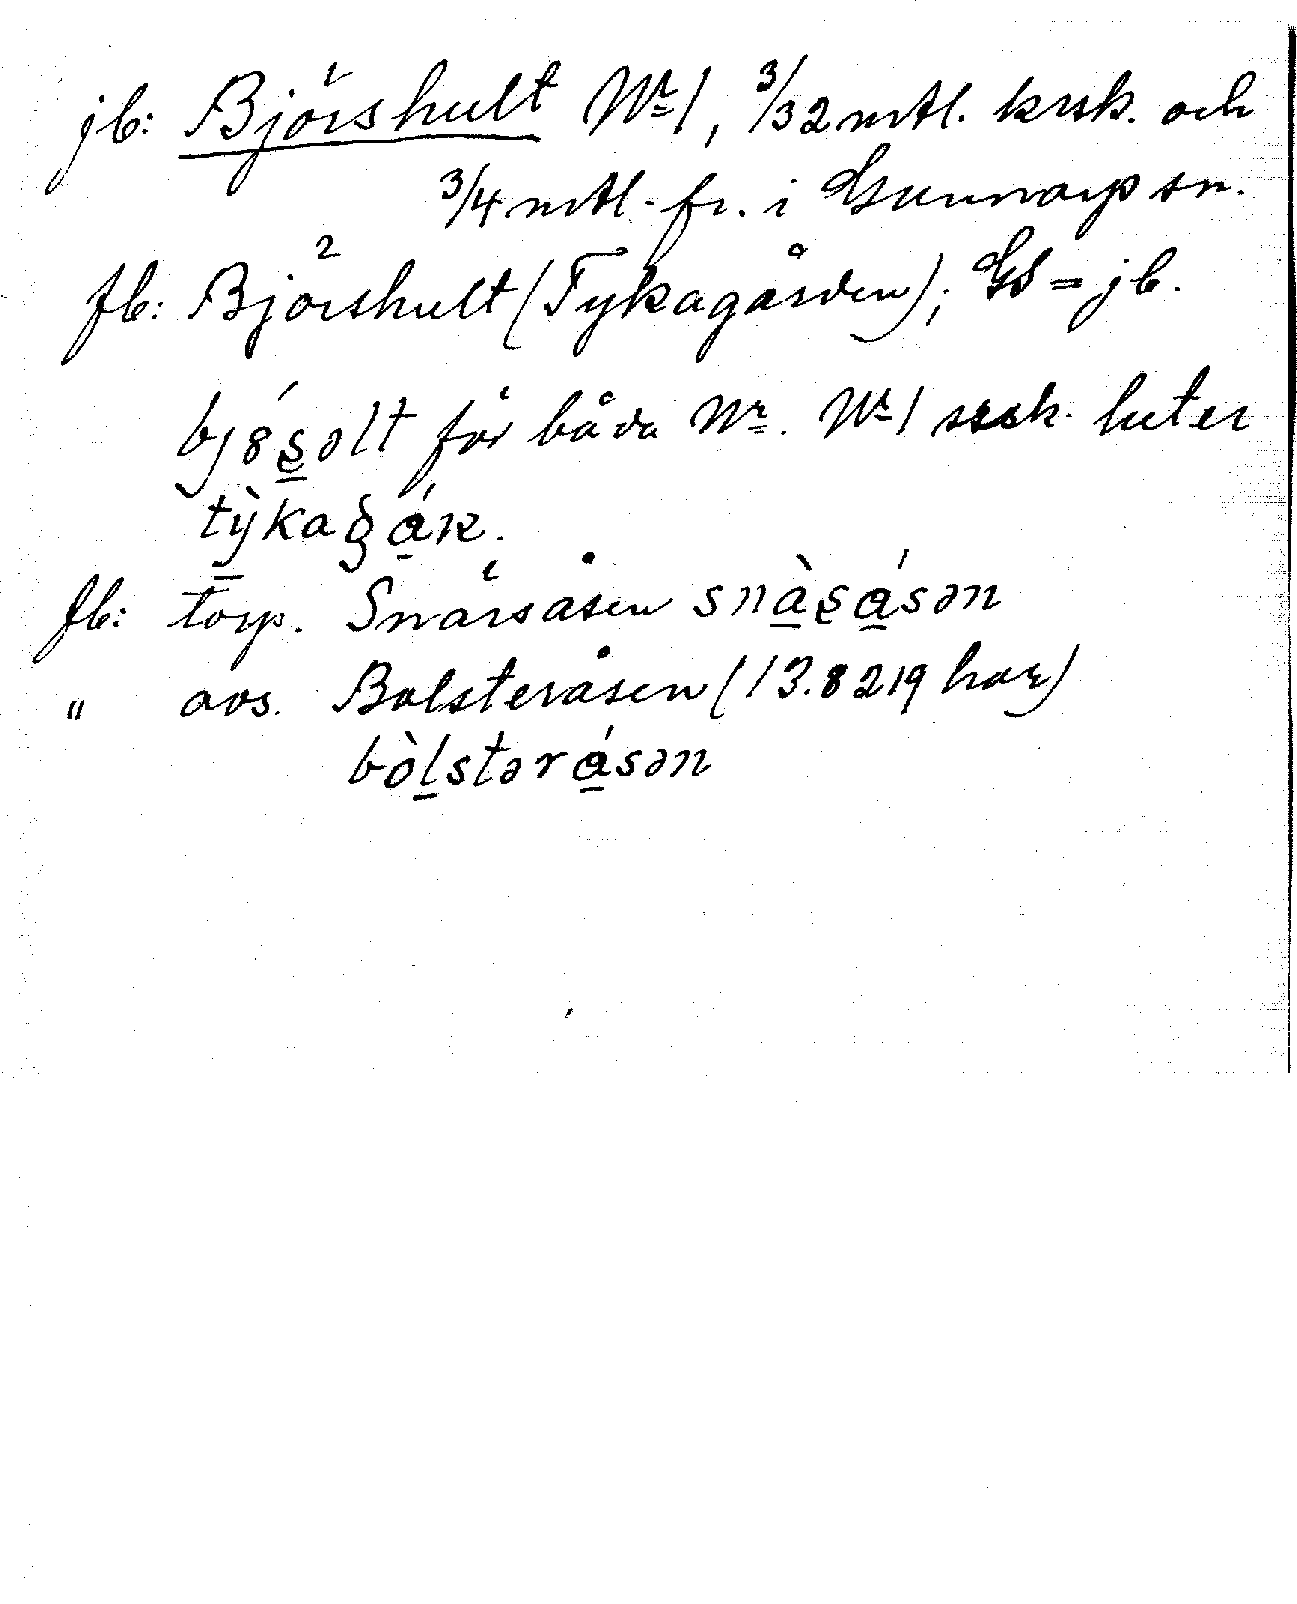 jb: Björshult Nr 1, 3/32 mtl. krsk. och
3/4 mtl. fr. i Gunnarp sn.
fb: Björshult (Tykagården); GS = jb.
för båda Nr. Nr 1 krsk. heter
tỳkagák.
fb: torp. Snårsåsen snàsásən
" avs. Bolsteråsen (13.8219 har)
bòlstərásən